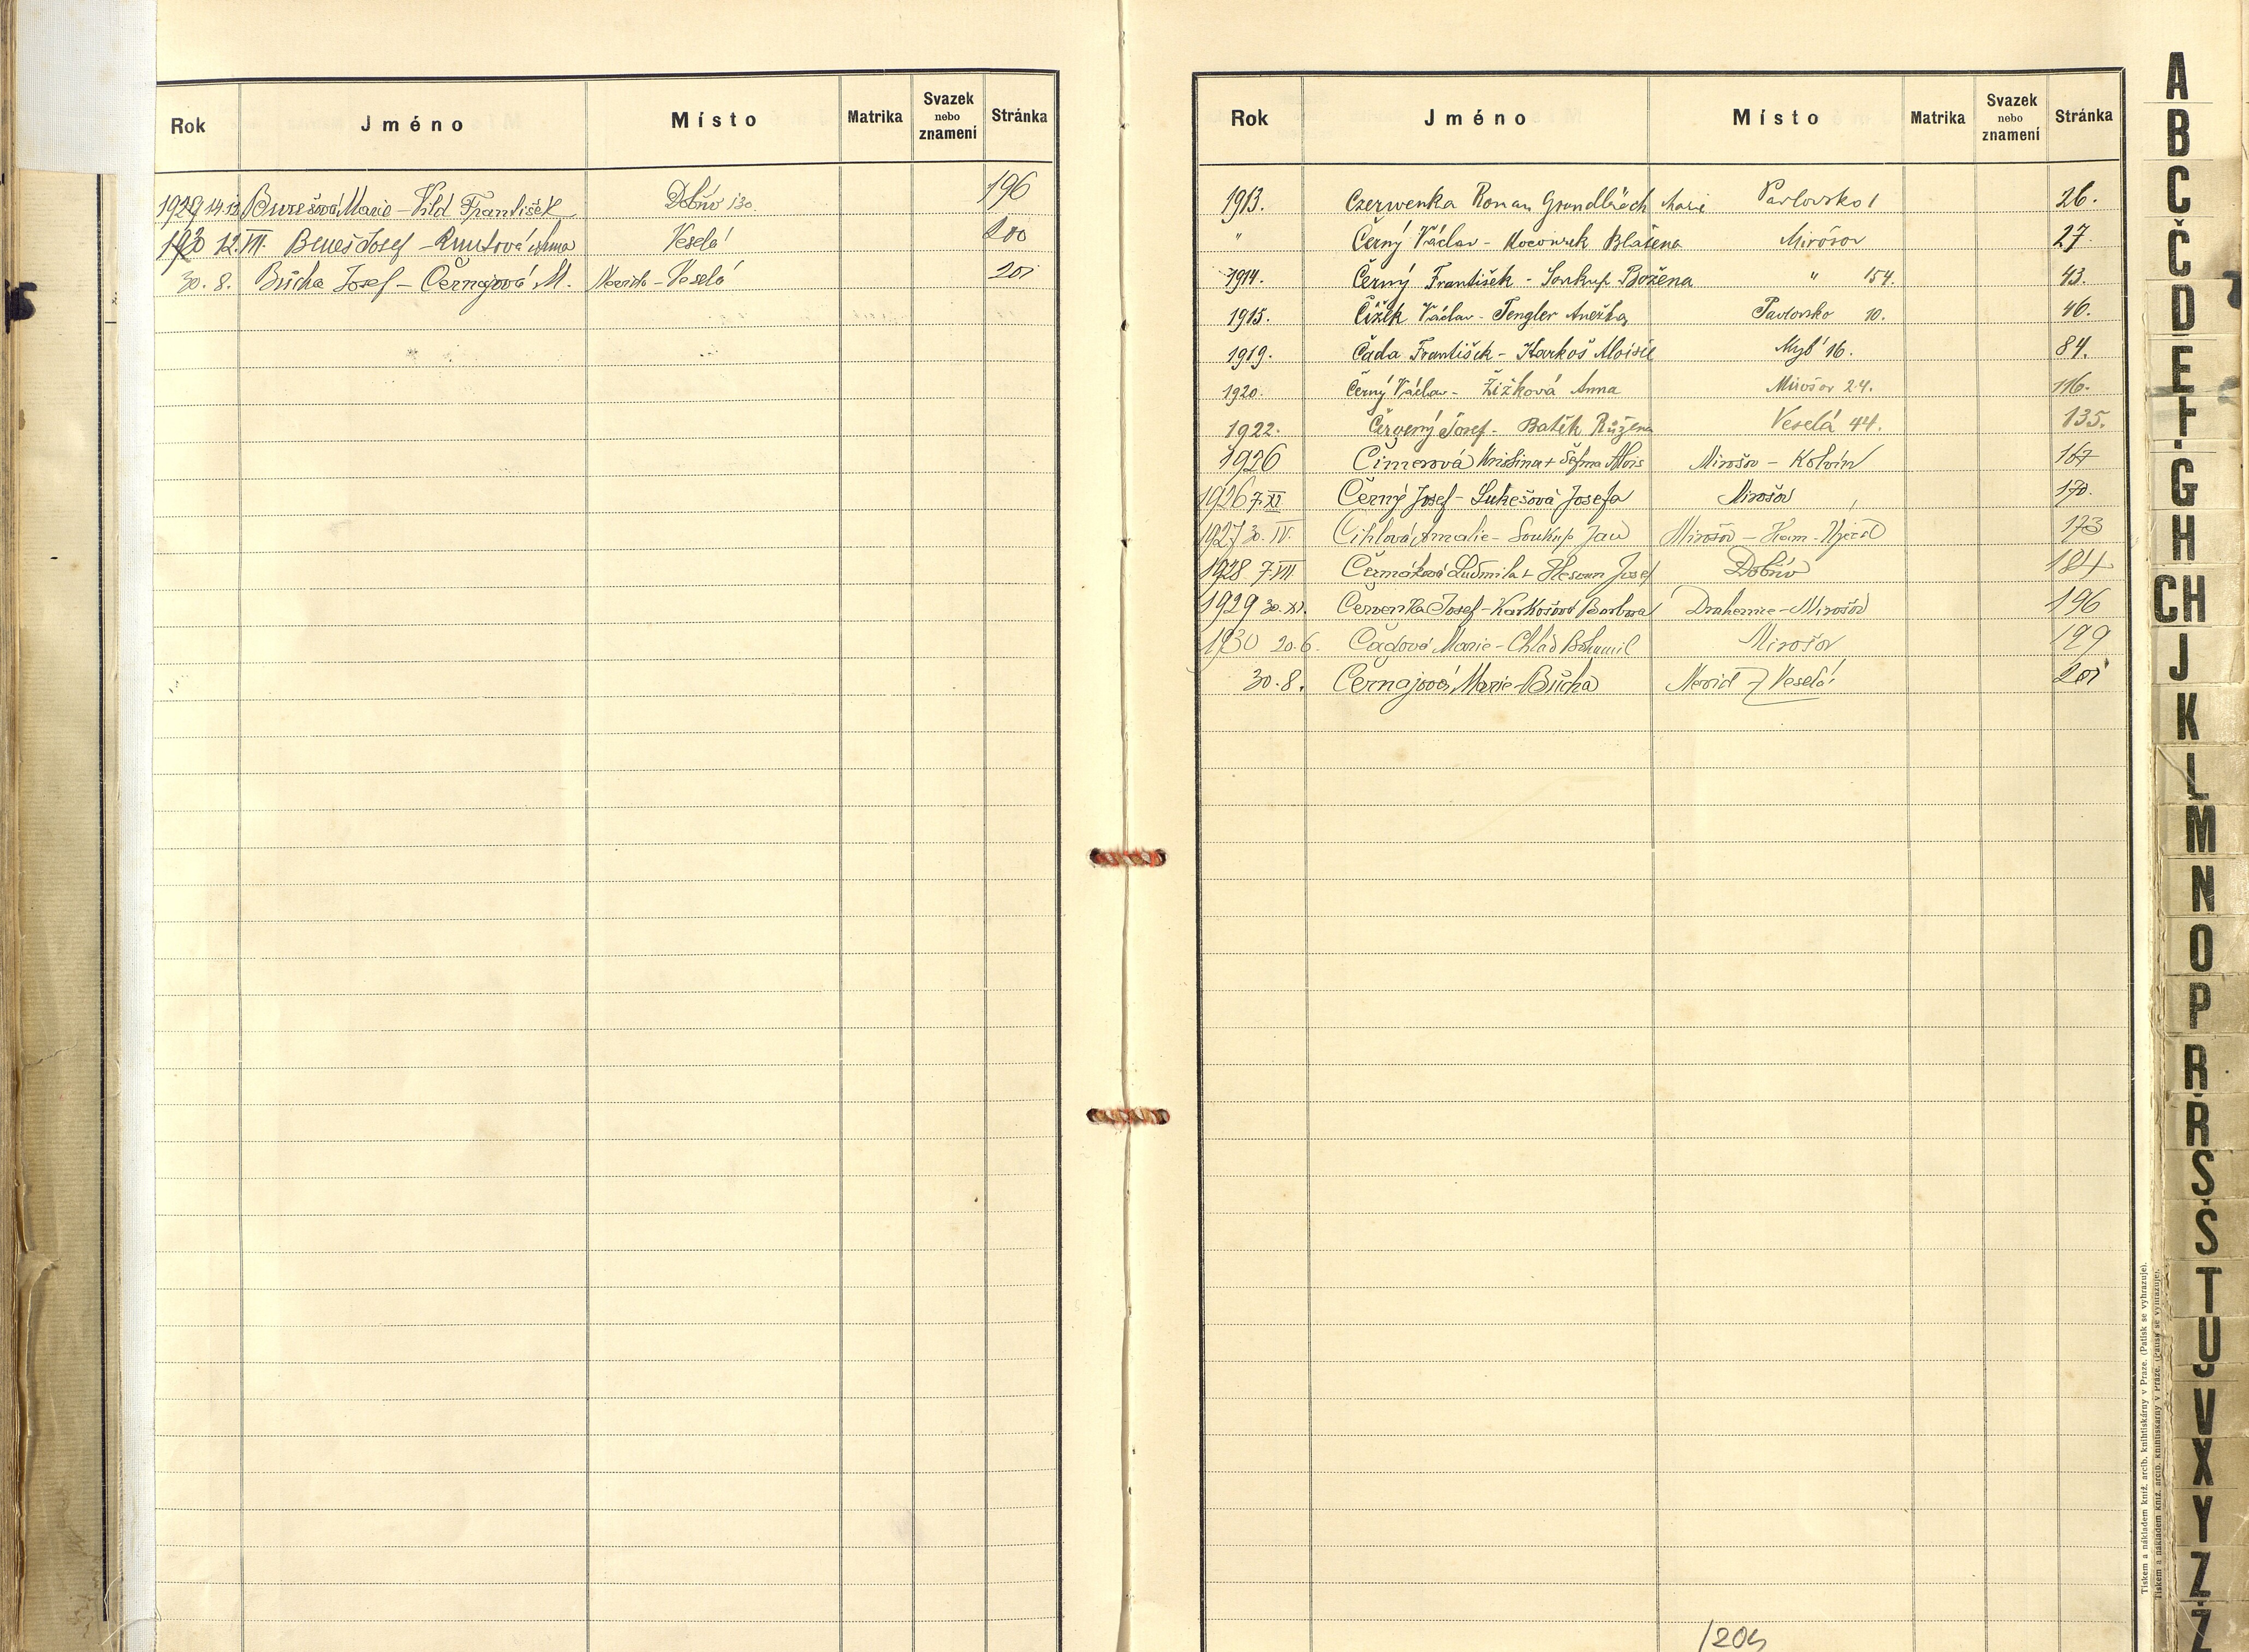 Rok Jméno Místo Matrika Svazek nebo znamení Stránka
1929 14.12. Burešová Marie - Vild František Dobřív 130. 196
1930 12.VII. Beneš Josef - Runtová Anna Veselá 200
30. 8. Bůcha Josef - Černajová M. Mevid - Veselá 201
Rok Jméno Místo Matrika Svazek nebo znamení Stránka
1913. Czerwenka Roman Grundläch Marie Pavlovsko 1 26.
" Černý Václav - Kocourek Blažena Mirošov 27.
1914. Černý František - Soukup Božena " 154. 43.
1915. Čížek Václav - Tengler Anežka Pavlovsko 10. 46.
1919. Čada František - Karkoš Aloisie Myť 16. 84.
1920. Černý Václav - Žižková Anna Mirošov 24. 116.
1922. Červený Josef - Batěk Růžena Veselá 44. 135.
1926 Čimerová Kristina + Alois Mirošov - Kolvín 167
1926 7.XI Černý Josef - Lukešová Josefa Mirošov 170.
1927 30. IV. Cihlová Amalie - Soukup Jan Mirošov - Kam. Újezd 173
1928 7.VII Čermáková Ludmila + Hesoun Josef Dobřív 184
1929 30.XI. Červenka Josef - Karkošová Barbora Drahenice - Mirošov 196
1930 20.6. Čadová Marie - Chlád Bohumil Mirošov 199
30.8. Černajová Marie - Bůcha Mevid - Veselá 201
A
B
C
Č
D
E
F
G
H
CH
J
K
L
M
N
O
P
R
Ř
S
Š
T
U
V
X
Y
Z
Ž
Tiskem a nákladem kníž. arcib. knihtiskárny v Praze. (Patisk se vyhrazuje).
Tiskem a nákladem kníž. arcib. knihtiskárny v Praze. (Patisk se vyhrazuje).